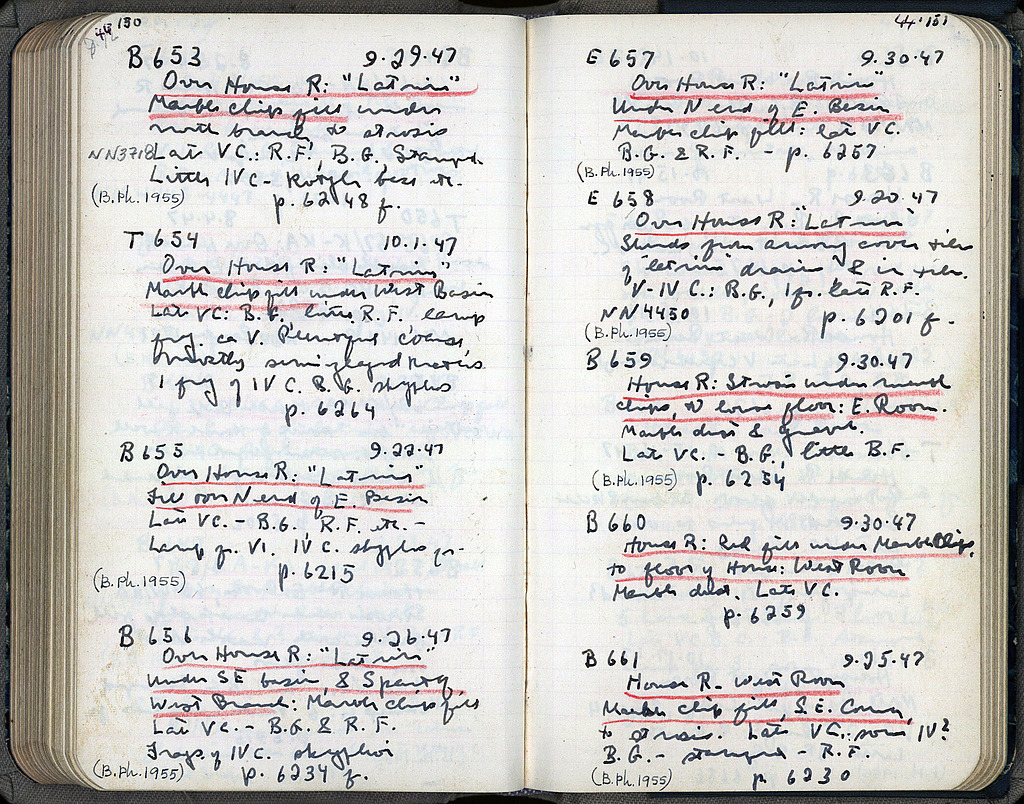 44 150
B 653 9.29.47
Over House R: "Latrine"
Marble chip fill under
north branch to strosis
NN3718 Late V C.: R.F., B.G. Stamped.
Little IV C - Kotyle base etc.
(B.Ph. 1955) p. 6248 f.
T 654 10.1.47
Over House R: "Latrine"
Marble chip fill under West Basin
Late V C. B.G. little R.F. lamp
frag. ca V. Plentiful coarse
mostly semi-glazed
1 frag of IV C. B.G. skyphos
p. 6264
B 655 9.22.47
Over House R: "Latrine"
Fill over N end of E. Basin
Late V C. - B.G., R.F. etc. -
Lamp fr. VI. IV C. skyphos fr.
p. 6215
(B.Ph. 1955)
B 656 9.26.47
Over House R: "Latrine"
under SE basin, & S part of
West Branch: Marble chip fill
Late V C. - B.G. & R.F.
Frags of IV C. skyphoi
(B.Ph. 1955) p. 6234 f.
44 151
E 657 9.30.47
Over House R: "Latrine"
Under N end of E. Basin
Marble chip fill: late V C.
B.G. & R.F. - p. 6257
(B.Ph. 1955)
E 658 9.20.47
Over House R: "Latrine"
Sherds from among cover tiles
of "latrine" drain & in tiles.
V-IV C.: B.G., 1 fr. late R.F.
NN 4450 p. 6201 f.
(B.Ph. 1955)
B 659 9.30.47
House R: Strosis under marble
chips, to lower floor: E. Room.
Marble dust & gravel.
Late V C. - B.G., little B.F.
(B.Ph. 1955) p. 6254
B 660 9.30.47
House R: Red fill under Marble Chips,
to floor of House: West Room
Marble dust. Late V C.
p. 6259
B 661 9.25.47
House R - West Room
Marble chip fill, S.E. Corner,
to strosis. Late V C., some IV?
B.G. - stamped - R.F.
(B.Ph. 1955) p. 6230